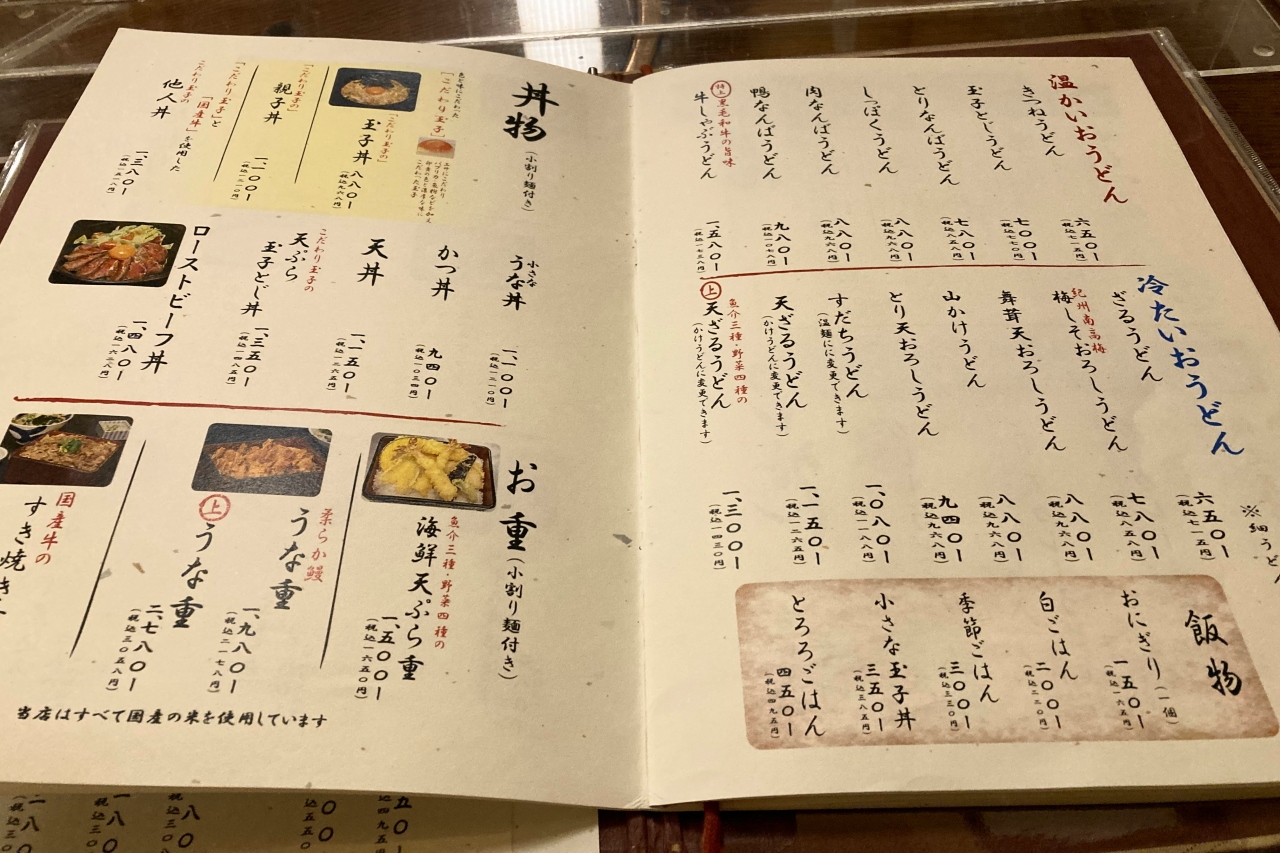 温かいおうどん
きつねうどん
六五〇ー
(税込七一五円)
玉子とじうどん
七〇〇ー
(税込七七〇円)
とりなんばうどん
七八〇ー
(税込八五八円)
しっぽくうどん
八八〇ー
(税込九六八円)
肉なんばうどん
八八〇ー
(税込九六八円)
鴨なんばうどん
九八〇ー
(税込一〇七八円)
特上
黒毛和牛の旨味
牛しゃぶうどん
一、五八〇ー
(税込一七三八円)
冷たいおうどん
※細うど
ざるうどん
六五〇ー
(税込七一五円)
紀州南高梅
梅しそおろしうどん
七八〇ー
(税込八五八円)
舞茸天おろしうどん
八八〇ー
(税込九六八円)
山かけうどん
八八〇ー
(税込九六八円)
とり天おろしうどん
九四〇ー
すだちうどん
(温麺にに変更できます)
一、〇八〇ー
(税込一一八八円)
天ざるうどん
(かけうどんに変更できます)
一、一五〇ー
(税込一二六五円)
魚介三種・野菜四種の
上
天ざるうどん
(かけうどんに変更できます)
一、三〇〇ー
(税込一四三〇円)
飯物
おにぎり(一個)
一五〇ー
(税込一六五円)
白ごはん
二〇〇ー
(税込二二〇円)
季節ごはん
三〇〇ー
(税込三三〇円)
小さな玉子丼
三五〇ー
(税込三八五円)
とろろごはん
四五〇ー
(税込四九五円)
丼物(小割り麺付き)
色と味にこだわった
「こだわり玉子」
「こだわり玉子の」
玉子丼
八八〇ー
(税込九六八円)
「こだわり玉子の」
親子丼
一、一〇〇ー
(税込一二一〇円)
「こだわり玉子」と
「国産牛」を使用した
こだわり玉子の
他人丼
一、三八〇ー
(税込一五一八円)
小さな
うな丼
一、一〇〇ー
(税込一二一〇円)
かつ丼
九四〇ー
(税込一〇三四円)
天丼
一、一五〇ー
(税込一二六五円)
こだわり玉子の
天ぷら
玉子とじ丼
一、三五〇ー
(税込一四八五円)
ローストビーフ丼
一、四八〇ー
(税込一六二八円)
お重(小割り麺付き)
魚介三種・野菜四種の
海鮮天ぷら重
一、五〇〇ー
(税込一六五〇円)
柔らか鰻
うな重
一、九八〇ー
(税込二一七八円)
上
うな重
二、七八〇ー
(税込三〇五八円)
国産牛の
すき焼き
当店はすべて国産の米を使用しています